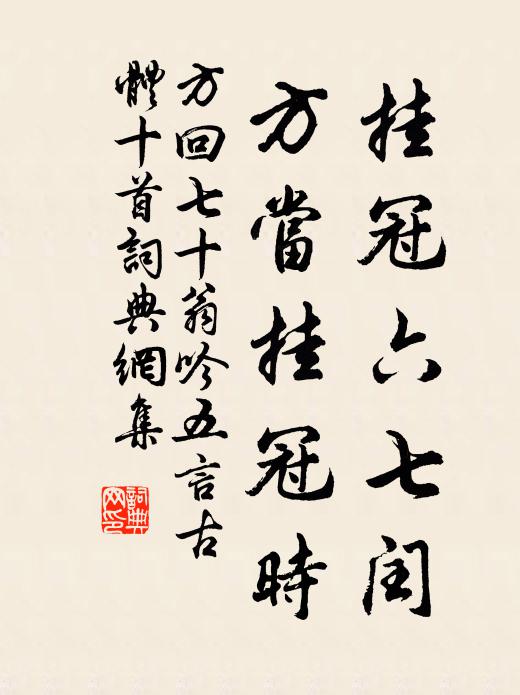 挂冠六七闰
方當挂冠時
方回七十翁吟五言古
體十首詞典網集
詞典
网印